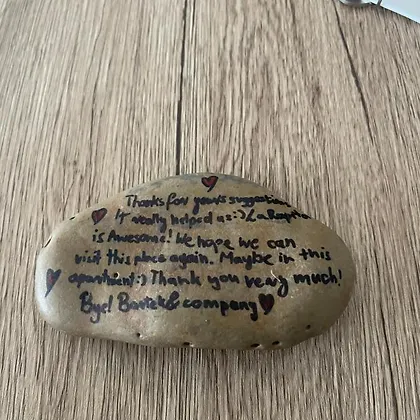 Thanks for yours suggestions
It really helped us :)
is Awesome! We hope we can
visit this place again. Maybe in this
apartment :) Thank you very much!
Bye! Bartek & company